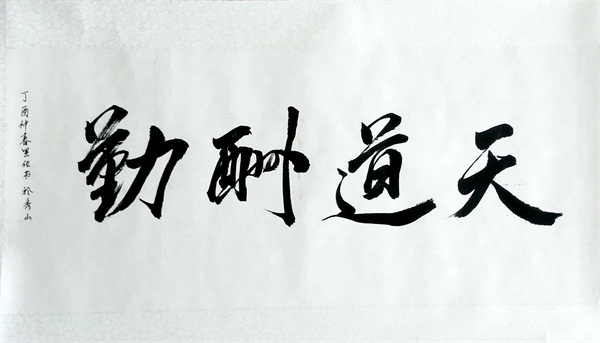 天道酬勤
丁酉仲春
於秀山